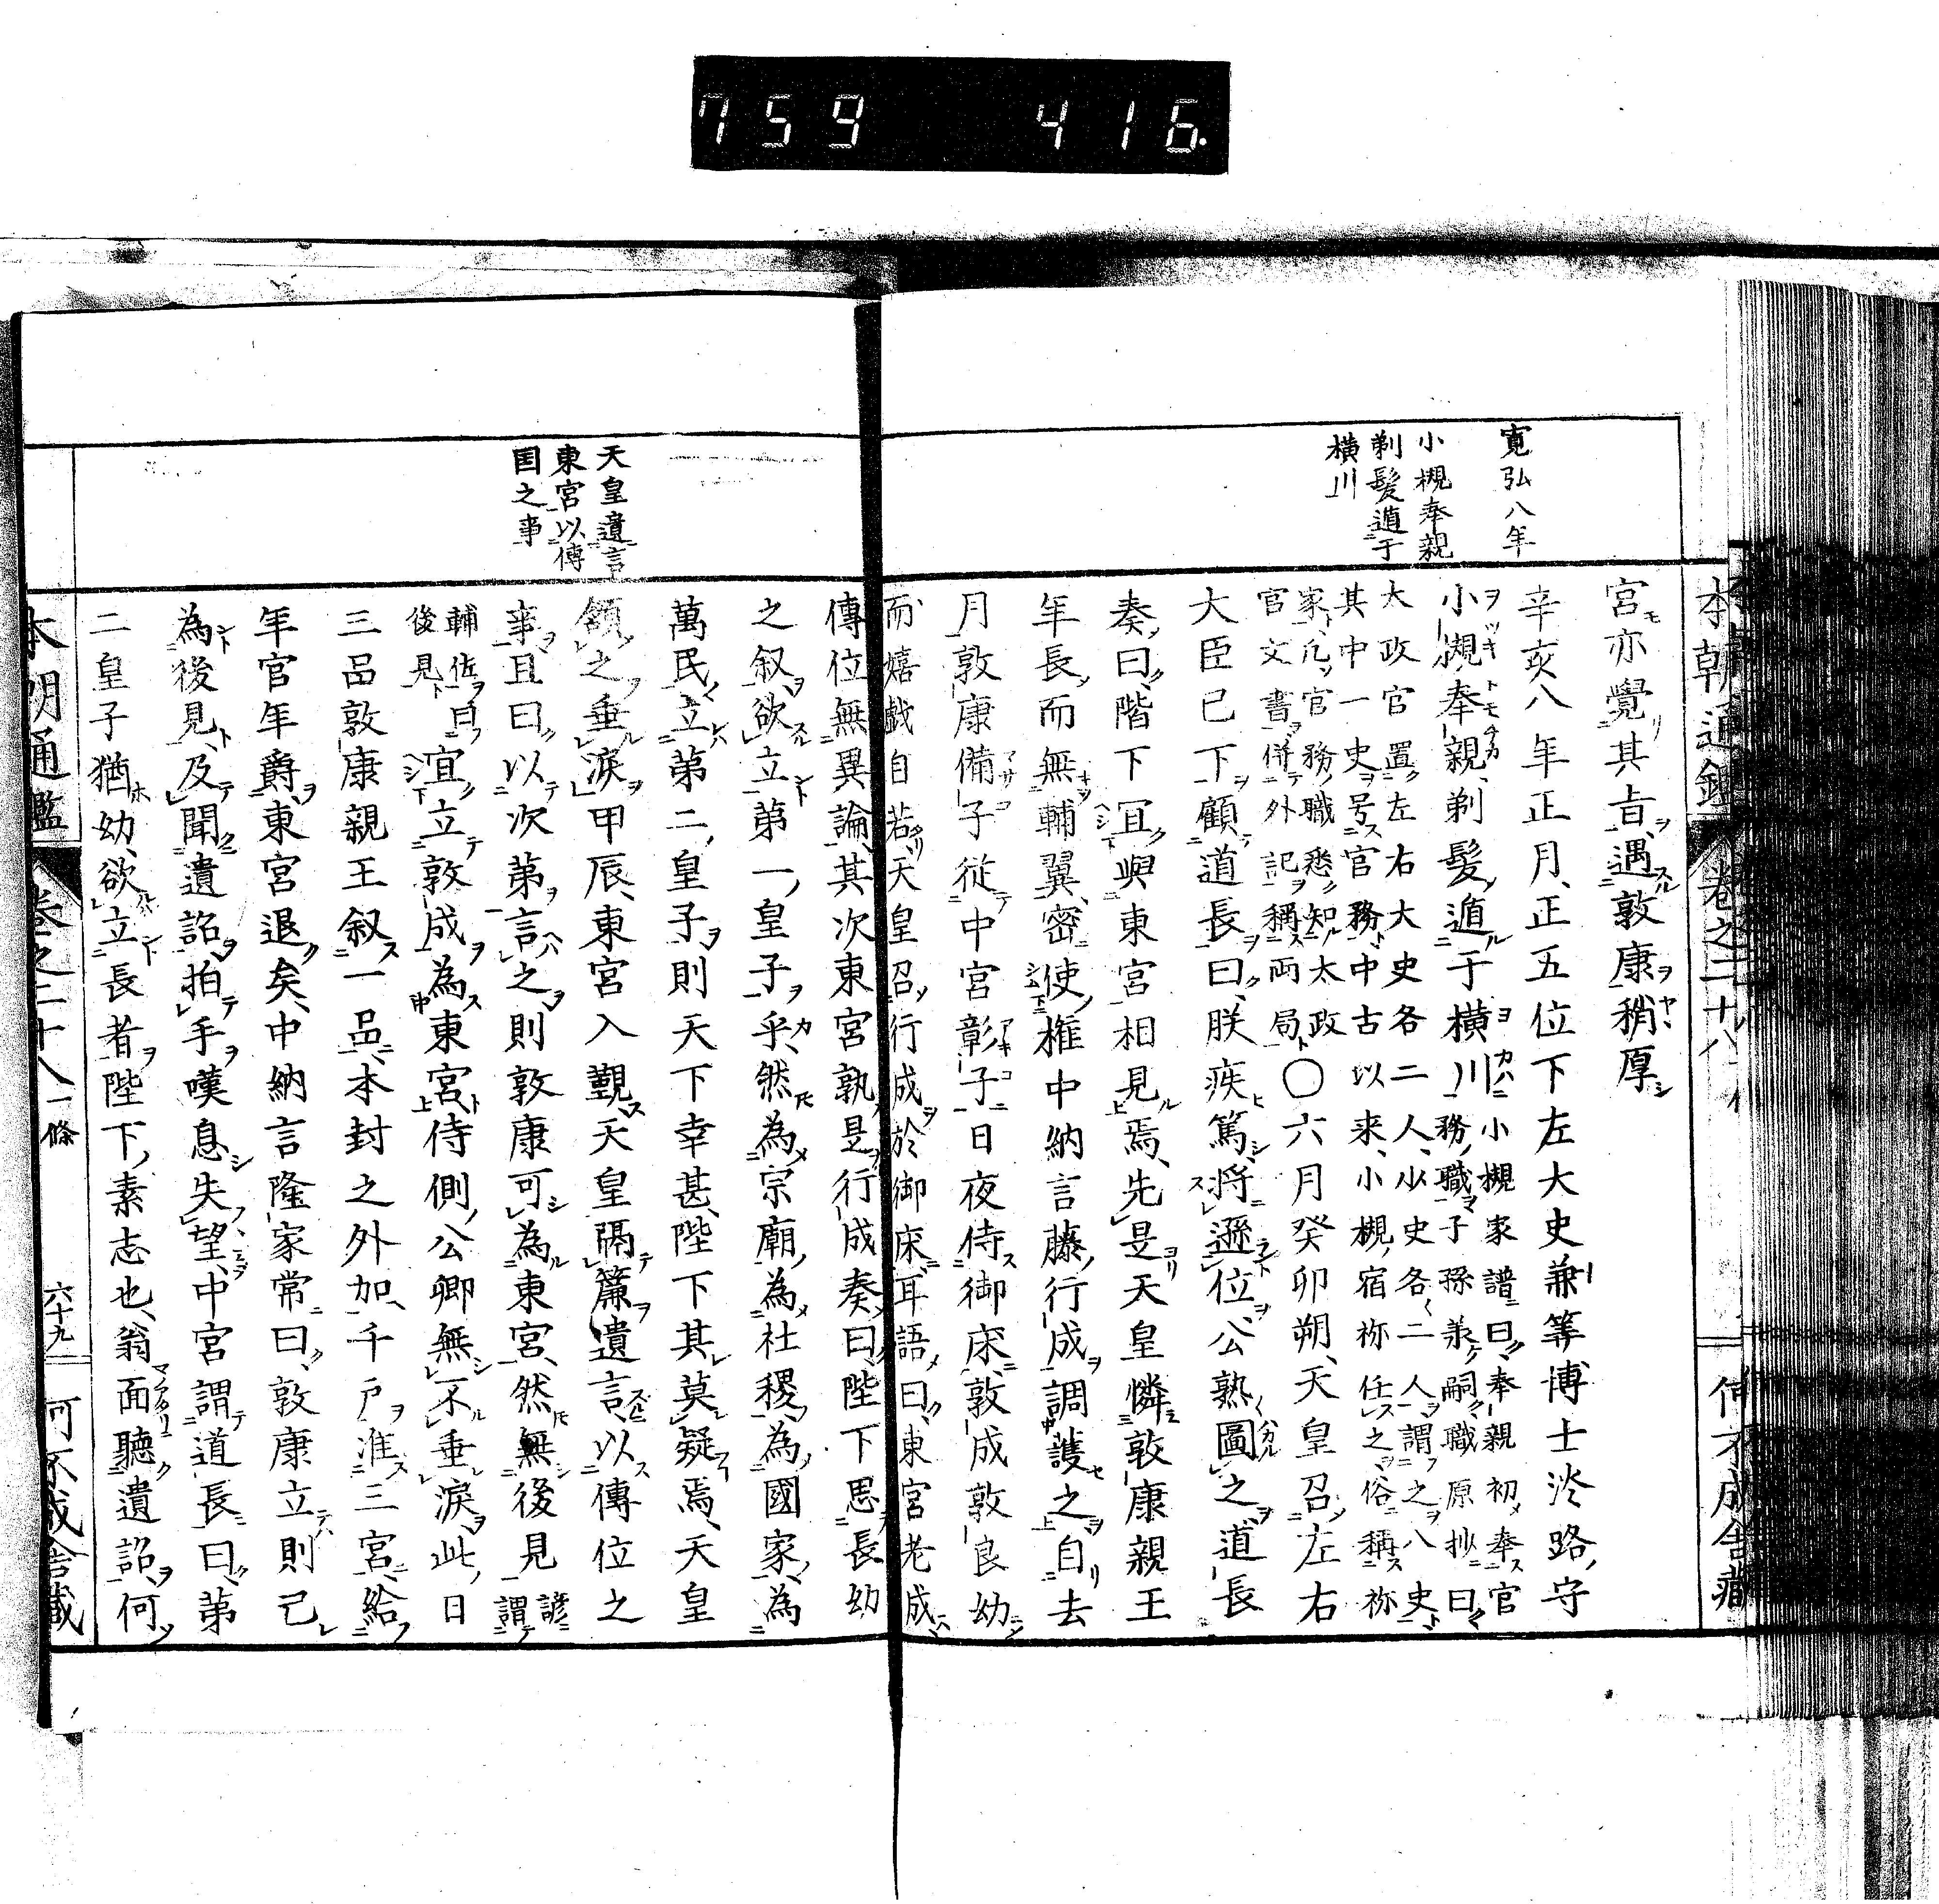 759 416
寛弘八年
小槻奉親
剃髪遁于
横川
宮亦覺其旨遇敦康稍厚
辛亥八年正月正五位下左大史兼筭博士淡路守
小槻奉親剃髪遁于横川
小槻家譜曰奉親初奉官
務職子孫兼嗣職原抄曰
大政官置左右大史各二人少史各二人謂之八史
其中一史号官務中古以来小槻宿祢任之俗稱祢
家凡官務職悉知太政
官文書併外記稱両局
〇六月癸卯朔天皇召左右
大臣已下顧道長曰朕疾篤將遜位公熟圖之道長
奏曰階下冝與東宮相見焉先是天皇憐敦康親王
年長而無輔翼密使權中納言藤行成調護之自去
月敦康備子從中宮彰子日夜侍御床敦成敦良幼
而嬉戯自若天皇召行成於御床耳語曰東宮老成
天皇遺言
東宮以傳
国之事
傳位無異論其次東宮孰是行成奏曰陛下思長幼
之叙欲立第一皇子乎然為宗廟為社稷為國家為
萬民立第二皇子則天下幸甚陛下其莫疑焉天皇
頷之垂涙甲辰東宮入覲天皇隔簾遺言以傳位之
事且曰以次第言之則敦康可為東宮然無後見
諺謂
輔佐曰
後見
宜立敦成為東宮侍側公卿無不垂涙此日
三品敦康親王叙一品本封之外加千戸准三宮給
年官年爵東宮退矣中納言隆家常曰敦康立則己
為後見及聞遺詔拍手嘆息失望中宮謂道長曰第
二皇子猶幼欲立長者陛下素志也翁面聽遺詔何
本朝通鑑
卷之二十八
一條
六十九
何不成舎藏